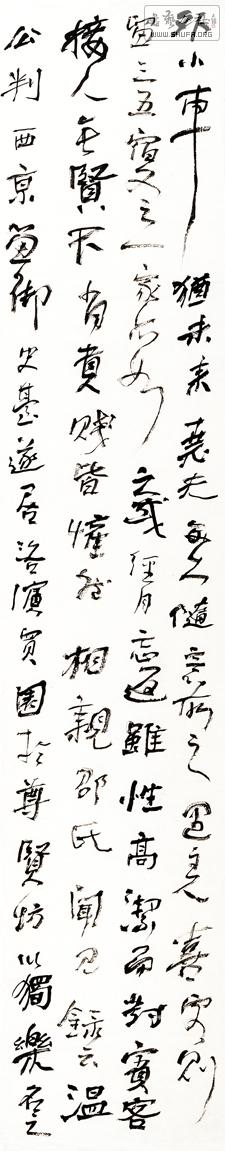 WWW.SHUFA.ORG
小車猶未来堯夫每出隨意所之遇主人喜客則
留三五宿又之一家亦如之或經月忘返雖性高潔而對賓客
接人无賢不肖貴賤皆懽然相親邵氏聞見錄云溫
公判西京留御史臺遂居洛濱買園於尊賢坊以獨樂名之